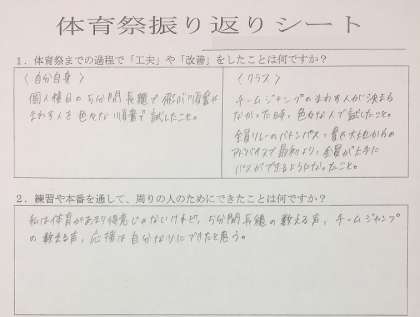 体育祭振り返りシート
1．体育祭までの過程で「工夫」や「改善」をしたことは何ですか？
〈自分自身〉
個人種目の5分間長縄で 順番
まわす人を色々な順番で試したこと。
〈クラス〉
チームジャンプのまわす人が決まら
なかった時、色々な人で試したこと。
全員リレーのバトンパスで
アドバイスで最初より、全員が上手に
パスができるようになったこと。
2．練習や本番を通して、周りの人のためにできたことは何ですか？
私は体育があまり得意じゃないけれど、5分間長縄の数える声、チームジャンプ
の数える声、応援は自分なりにできたと思う。